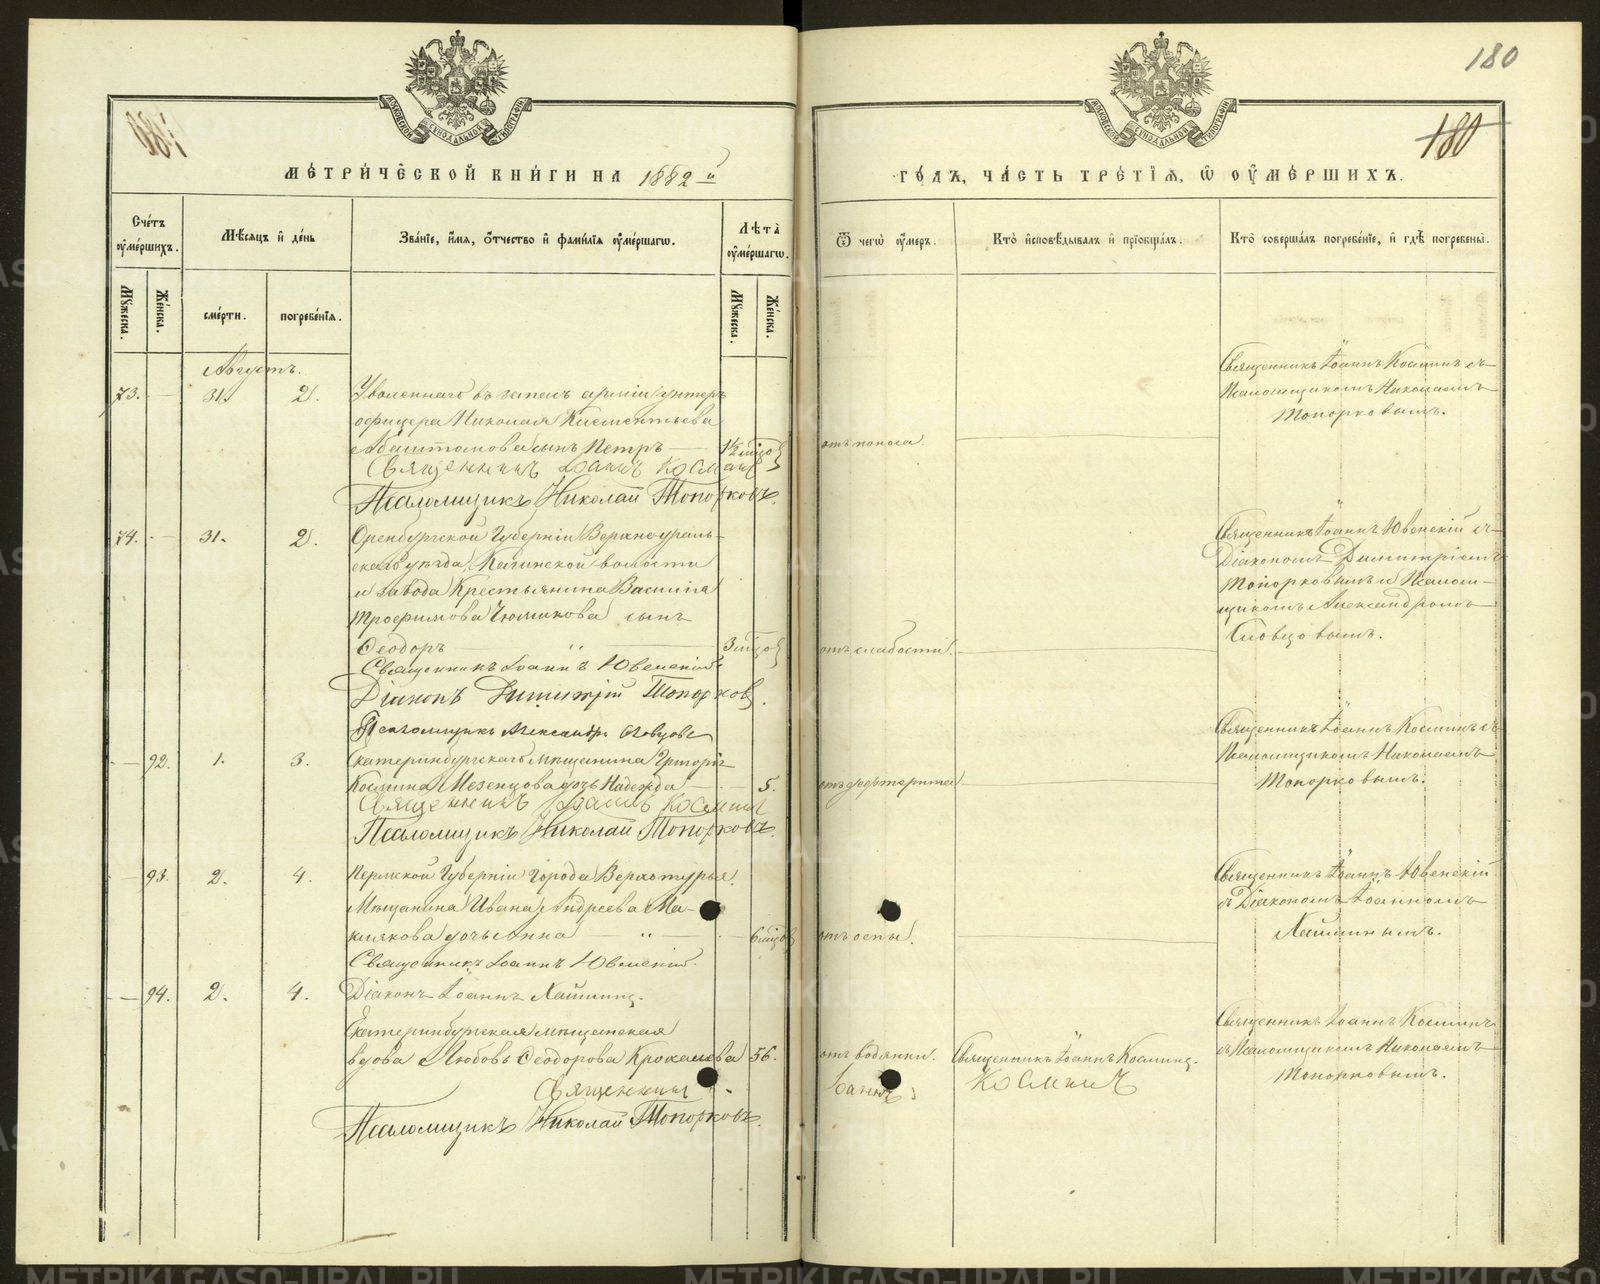 180
180
МЕТРИЧЕСКОЙ КНИГИ НА 1882 й
ГОДЪ, ЧАСТЬ ТРЕТІЯ, Ѿ ОУМЕРШИХЪ.
Счетъ оумершихъ.
Мѣсяцъ и день
Званіе, имя, отчество и фамилія оумершагѡ.
Лѣта оумершагѡ.
Ѿ чегѡ оумеръ.
Кто исповѣдывалъ и пріобщалъ.
Кто совершалъ погребеніе, и гдѣ погребены.
Мужеска.
Женска.
смерти.
погребенія.
Мужеска.
Женска.
Августъ.
73. 31. 2.
Уволеннаго въ запасъ арміи унтеръ
офицера Николая Климентьева
сынъ Петръ 1½ мѣсо
Священникъ Іоаннъ Косминъ
Псаломщикъ Николай Топорковъ.
отъ поноса.
Священникъ Іоаннъ Косминъ съ
Псаломщикомъ Николаемъ
Топорковымъ.
74. 31. 2.
Оренбургской Губерніи Верхнеураль-
скаго уѣзда, Кагинской волости
и завода Крестьянина Василія
Трофимова сынъ
Ѳеодоръ 3 мѣсо
Священникъ Іоаннъ Ювенскій
Діаконъ Димитрій Топорков
Псаломщикъ Александръ Словцовъ
отъ слабости.
Священникъ Іоаннъ Ювенскій съ
Діакономъ Димитріемъ
Топорковымъ и Псалом-
щикомъ Александромъ
Словцовымъ.
92. 1. 3.
Екатеринбургскаго мѣщанина Григорія
Космина Мезенцова дочь Надежда 5.
Священникъ Іоаннъ Косминъ
Псаломщикъ Николай Топорковъ.
отъ дифтерита
Священникъ Іоаннъ Косминъ съ
Псаломщикомъ Николаемъ
Топорковымъ.
93. 2. 4.
Пермской Губерніи города Верхотурья
Мѣщанина Ивана Андреева Ма-
клакова дочь Анна 6 мѣсо
Священникъ Іоаннъ Ювенскій.
Діаконъ Іоаннъ
отъ оспы.
Священникъ Іоаннъ Ювенскій
съ Діакономъ Іоанномъ
94. 2. 4.
Екатеринбургская мѣщанская
вдова Любовь Ѳеодорова 56.
Священникъ
Псаломщикъ Николай Топорковъ.
отъ водянки.
Іоаннъ
Священникъ Іоаннъ Косминъ.
Косминъ
Священникъ Іоаннъ Косминъ
съ Псаломщикомъ Николаемъ
Топорковымъ.